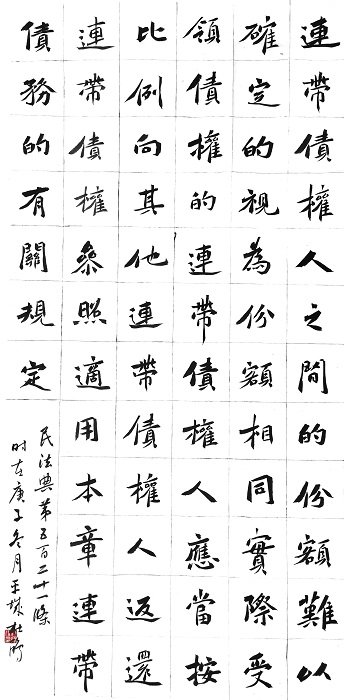 連帶債權人之間的份額難以
確定的視為份額相同實際受
領債權的連帶債權人應當按
比例向其他連帶債權人返還
連帶債權參照適用本章連帶
債務的有關規定
民法典第五百二十一條
时在庚子冬月